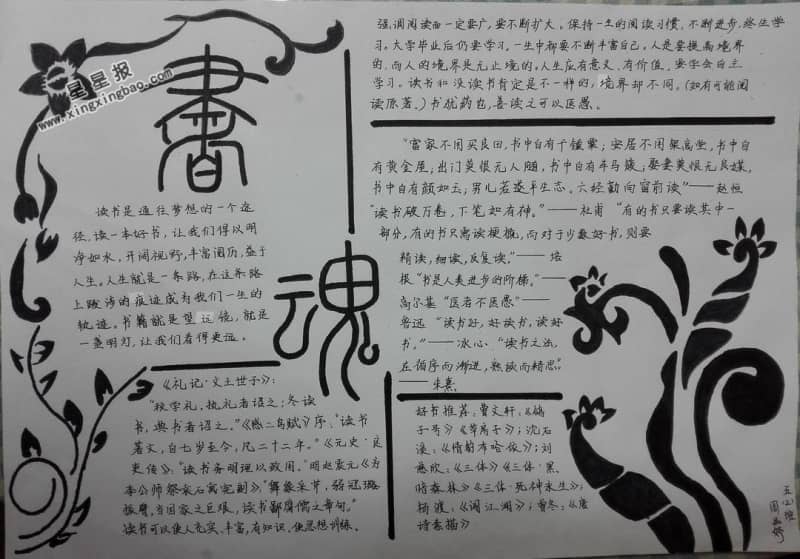 星星报
www.xingxingbao.com
書
魂
读书是通往梦想的一个途
径,读一本好书,让我们得以明
净如水,开阔视野,丰富阅历,益于
人生。人生就是一条路,在这条路
上跋涉的痕迹成为我们一生的
轨迹。书籍就是望远镜,就是
一盏明灯,让我们看得更远。
《礼记·文王世子》:
"秋学礼,执礼者诏之;冬读
书,典书者诏之。"《感二鸟赋》序:"读书
著文,自七岁至今,凡二十二年。"《元史·良
吏传》:"读书务明理以致用。"明赵震元《为
李公师祭袁石寓宪副》:"舞象采芹,弱冠璐
振臂,当国家之巨艰,读书鄙腐儒之章句。"
读书可以使人充实、丰富,有知识,使思想训练。
强调阅读面一定要广,要不断扩大。保持一生的阅读习惯,不断进步,终生学
习。大学毕业后仍要学习,一生中都要不断丰富自己。人是要提高境界
的,而人的境界是无止境的。人生应有意义、有价值,要学会自主
学习。读书和没读书肯定是不一样的,境界却不同。(如有可能阅
读原著。)书犹药也,善读之可以医愚。
"富家不用买良田,书中自有千锺粟;安居不用架高堂,书中自
有黄金屋;出门莫恨无人随,书中自有车马簇;娶妻莫恨无良媒,
书中自有颜如玉;男儿若遂平生志。六经勤向窗前读"——赵恒
"读书破万卷,下笔如有神。"——杜甫 "有的书只要读其中一
部分,有的书只需读梗概,而对于少数好书,则要
精读,细读,反复读。"——培
根 "书是人类进步的阶梯。"——
高尔基 "医者不医愚"——
鲁迅 "读书好,好读书,读好
书。"——冰心 "读书之法,
在循序而渐进,熟读而精思"
——朱熹
好书推荐:曹文轩:《鸽
子号》《草房子》;沈石
溪:《情豹布哈依》;刘
慈欣:《三体》《三体·黑
暗森林》《三体·死神永生》;
杨渡:《词江湖》;曾冬:《唐
诗素描》